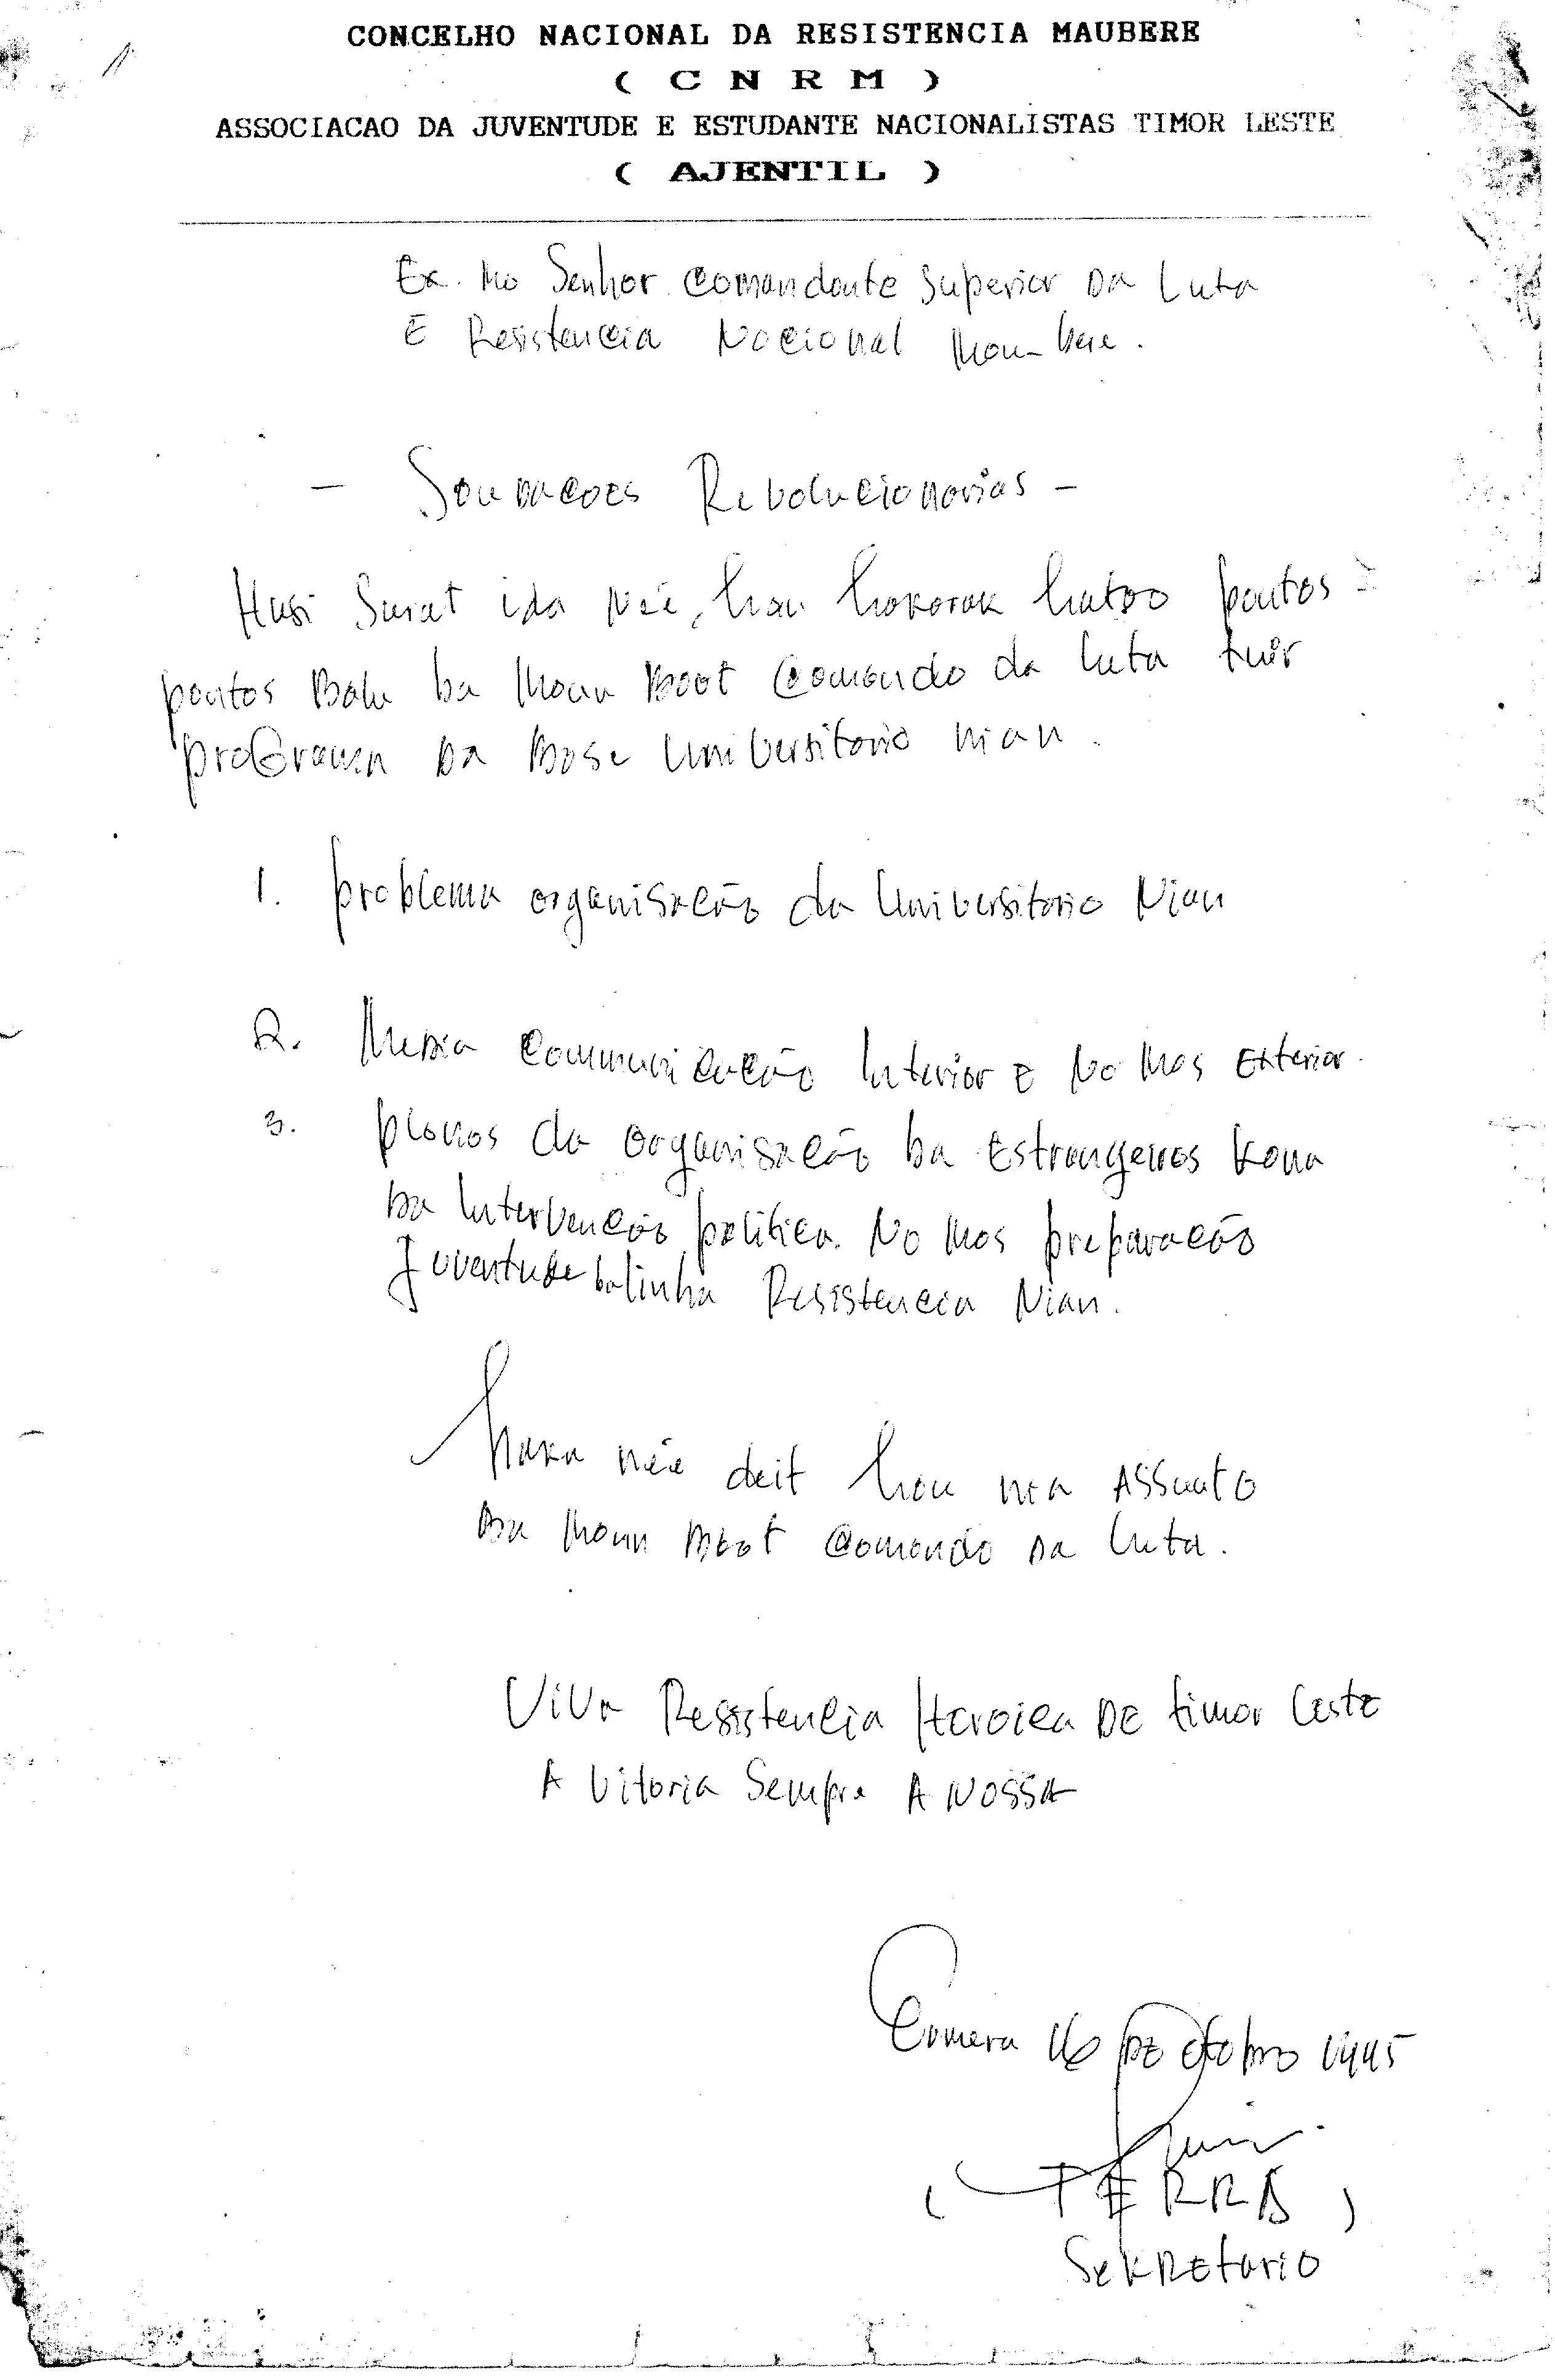 CONCELHO NACIONAL DA RESISTENCIA MAUBERE
( C N R M )
ASSOCIACAO DA JUVENTUDE E ESTUDANTE NACIONALISTAS TIMOR LESTE
( AJENTIL )
Ex. mo Senhor Comandante Superior Da Luta
E Resistencia Nacional Mau-bere.
- Saudacoes Revolucionarias -
Husi Surat ida Neé, hau hakarak hatoo pontos =
pontos Balu ba Maun Boot Comando da luta tuir
proGrama Da Base Universitario nian.
1. problema organisacão da Universitario Nian
2. Media Communicacão Interior E No Mos Exterior.
3. planos da organisacão ba Estrangeiros Kona
ba Intervencão politica. No Mos preparacão
Juventude balinha Resistencia Nian.
Maka neé deit hau nia Assunto
Ba Maun Boot Comando Da Luta.
Viva Resistencia Heroica DE timor Leste
A Vitoria Sempre A NOSSA
16 DE 1995
( TERRA )
SeKRetario